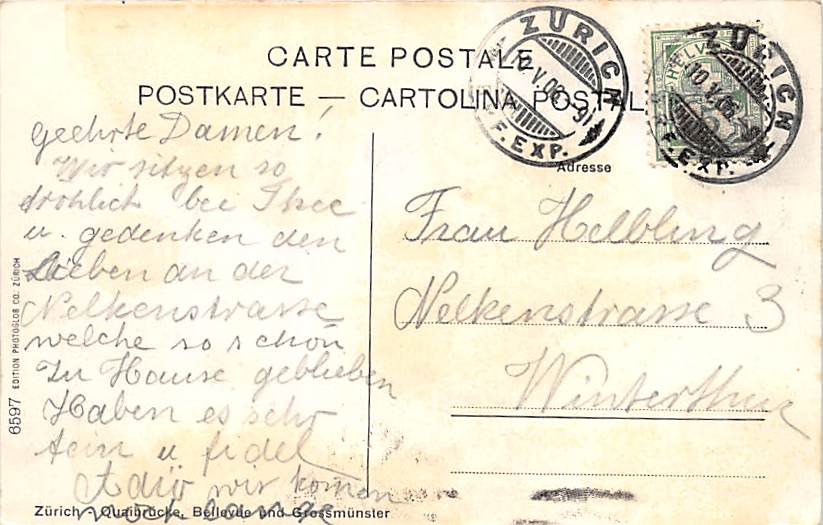 CARTE POSTALE
POSTKARTE — CARTOLINA POSTAL
ZÜRICH
10.V.06. 9
F. EXP.
HELV
ZÜRICH
10.V.06.
F. EXP.
Adresse
Geehrte Damen!
Wir sitzen so
fröhlich bei Thee
u. gedenken den
Lieben an der
Nelkenstrasse
welche so schön
Zu Hause geblieben
Haben es sehr
fein u fidel
Adiö wir komen
noch lange
Frau Helbling
Nelkenstrasse 3
Winterthur
6597 EDITION PHOTOGLOB CO. ZÜRICH
Zürich - Quaibrücke, Bellevue und Grossmünster